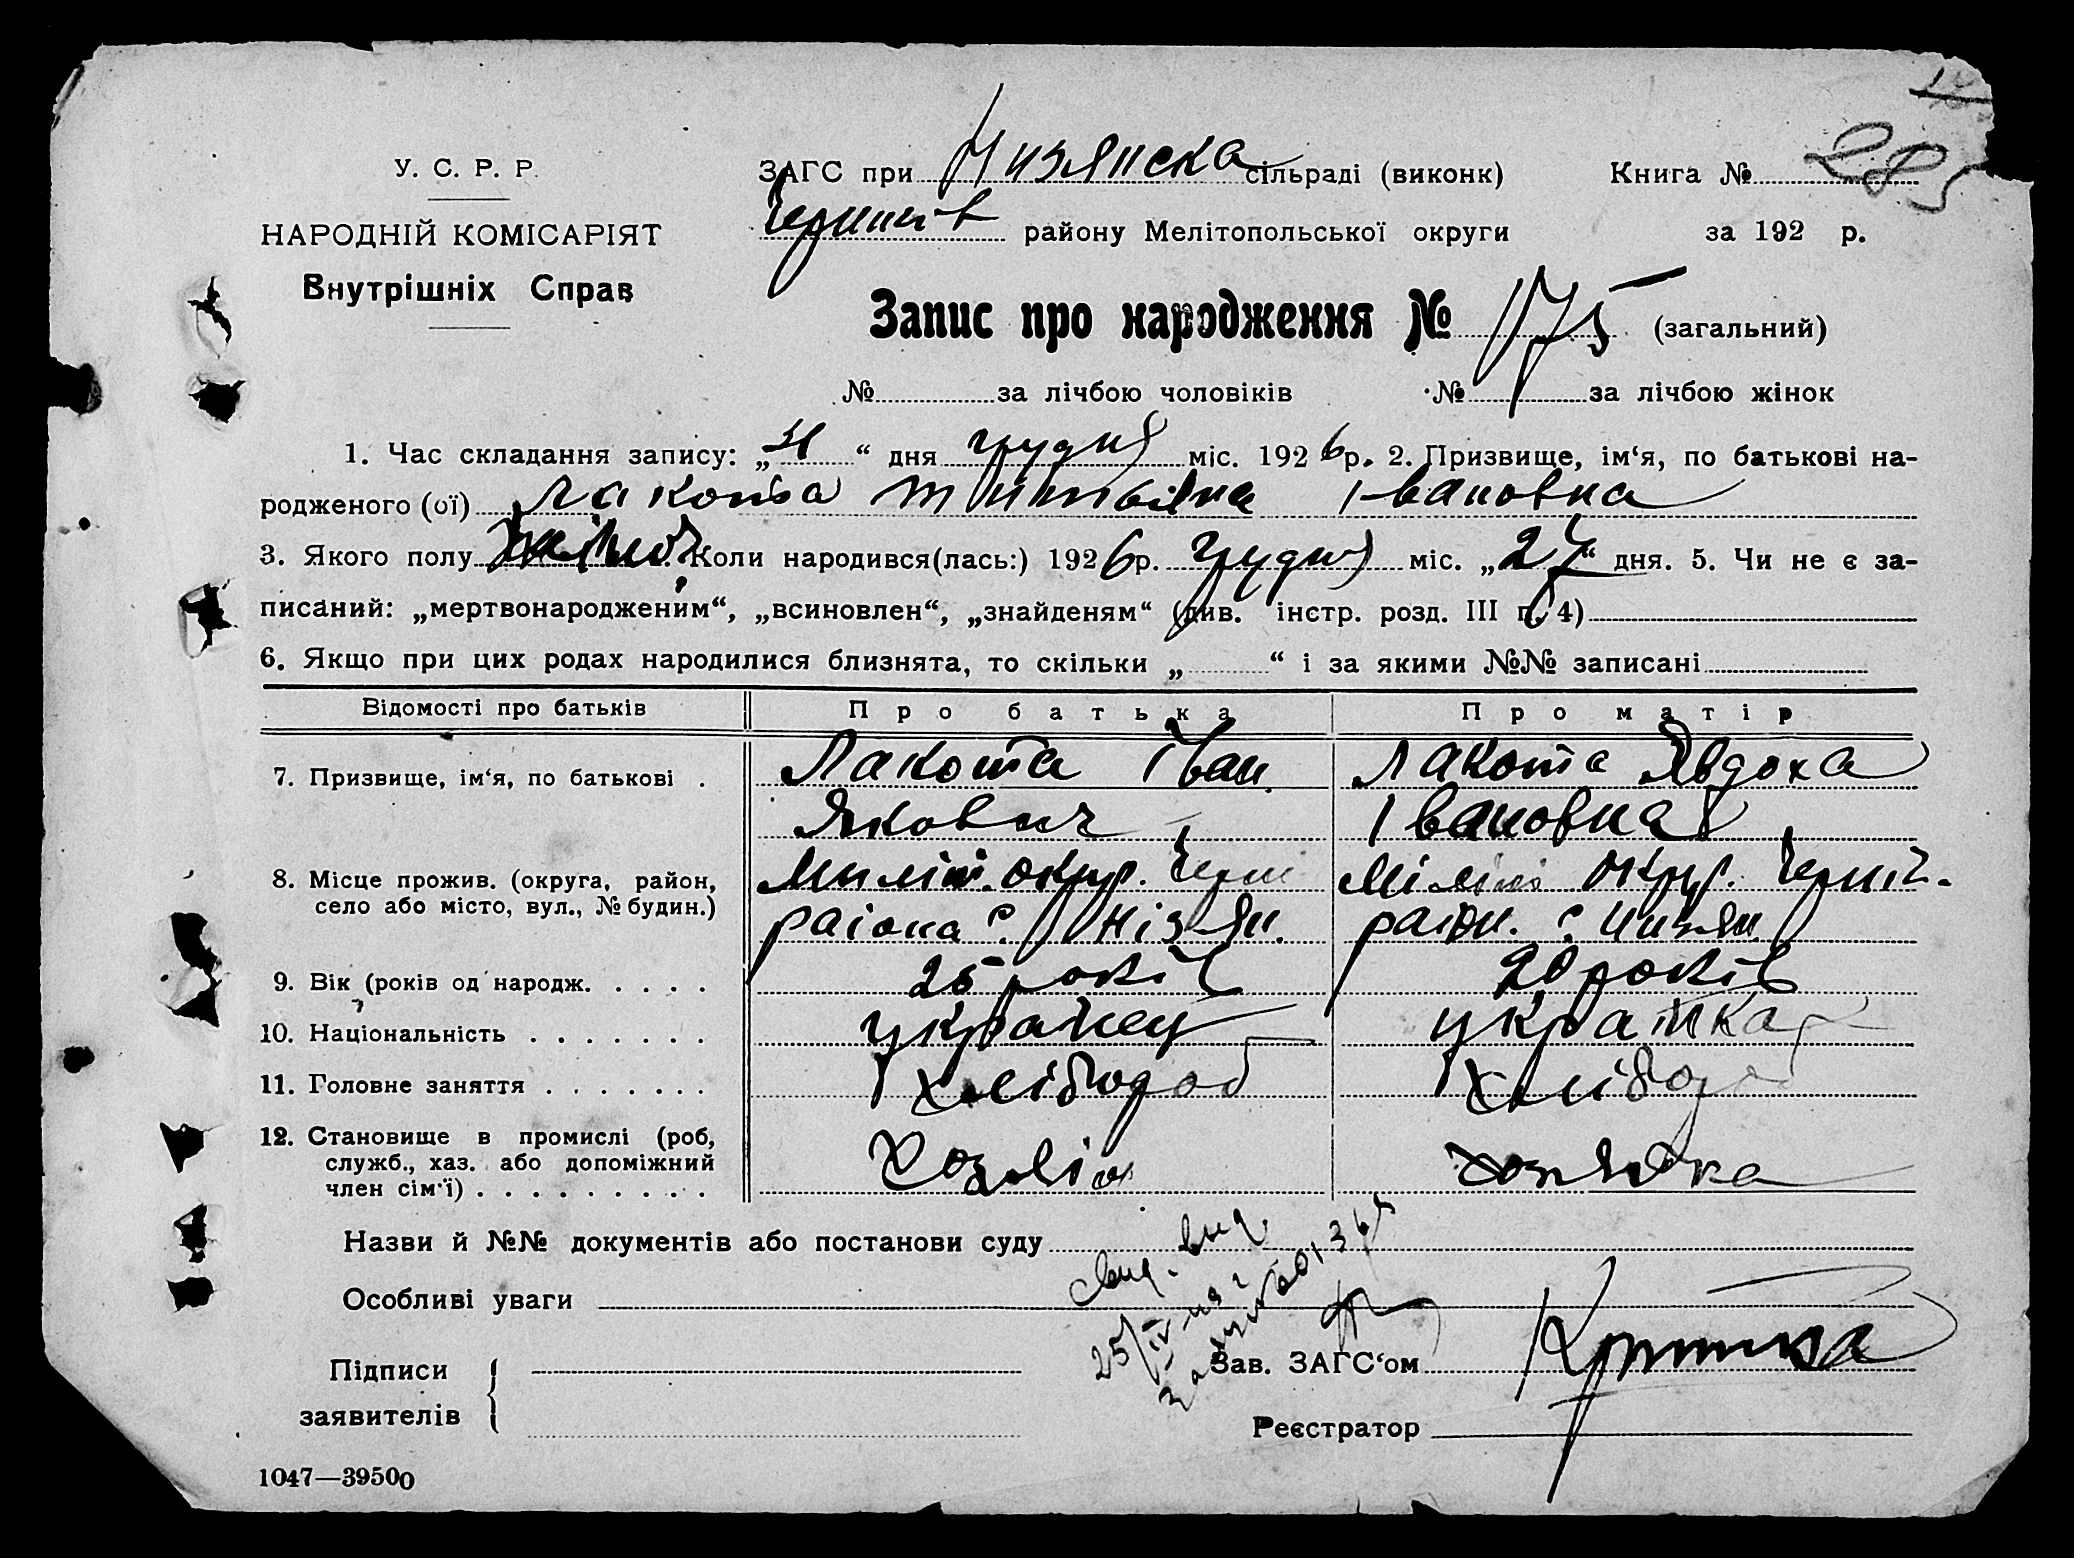 У. С. Р. Р.
НАРОДНІЙ КОМІСАРІЯТ
Внутрішніх Справ
ЗАГС при Низянска сільраді (виконк)
Черниг-в району Мелітопольської округи
Книга № 285
за 192 р.
Запис про народження № 175 (загальний)
№ за лічбою чоловіків № за лічбою жінок
1. Час складання запису: „31“ дня грудня міс. 1926 р. 2. Призвище, ім‘я, по батькові на-
родженого (ої) Лакотьа Титьяна Івановна
3. Якого полу Коли народився(лась:) 1926 р. грудня міс. „27“ дня. 5. Чи не є за-
писаний: „мертвонародженим“, „всиновлен“, „знайденям“ (див. інстр. розд. III п. 4)
6. Якщо при цих родах народилися близнята, то скільки „ “ і за якими №№ записані
Відомості про батьків Про батька Про матір
7. Призвище, ім‘я, по батькові . Лакота Іван Лакота Явдоха
Якович Івановна
8. Місце прожив. (округа, район, окур. окур.
село або місто, вул., № будин.) раіона с. Нізян. раіон. с. Низян.
9. Вік (років од народж. . . . . 25 років 20 років
10. Національність . . . . . . . українец украінка
11. Головне заняття . . . . . . . хлібороб хлібороб
12. Становище в промислі (роб, служб., хаз. або допоміжний член сім‘ї) . . . . . . . . . Хозяін хозяйка
Назви й №№ документів або постанови суду
Особливі уваги
Підписи
заявителів
Зав. ЗАГС‘ом
Реєстратор
1047—39500